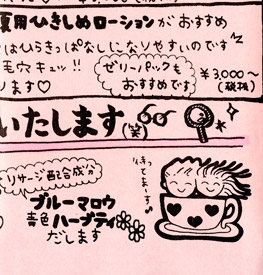 夏用ひきしめローションがおすすめ
はひらきっぱなしになりやすいのです
毛穴キュッ!!
ゼリーパックも
おすすめです
ります♡
¥3,000〜
(税抜)
いたします(笑)
リサージ配合成分
ブルーマロウ
青色ハーブティ
だします
待ってまーす♪